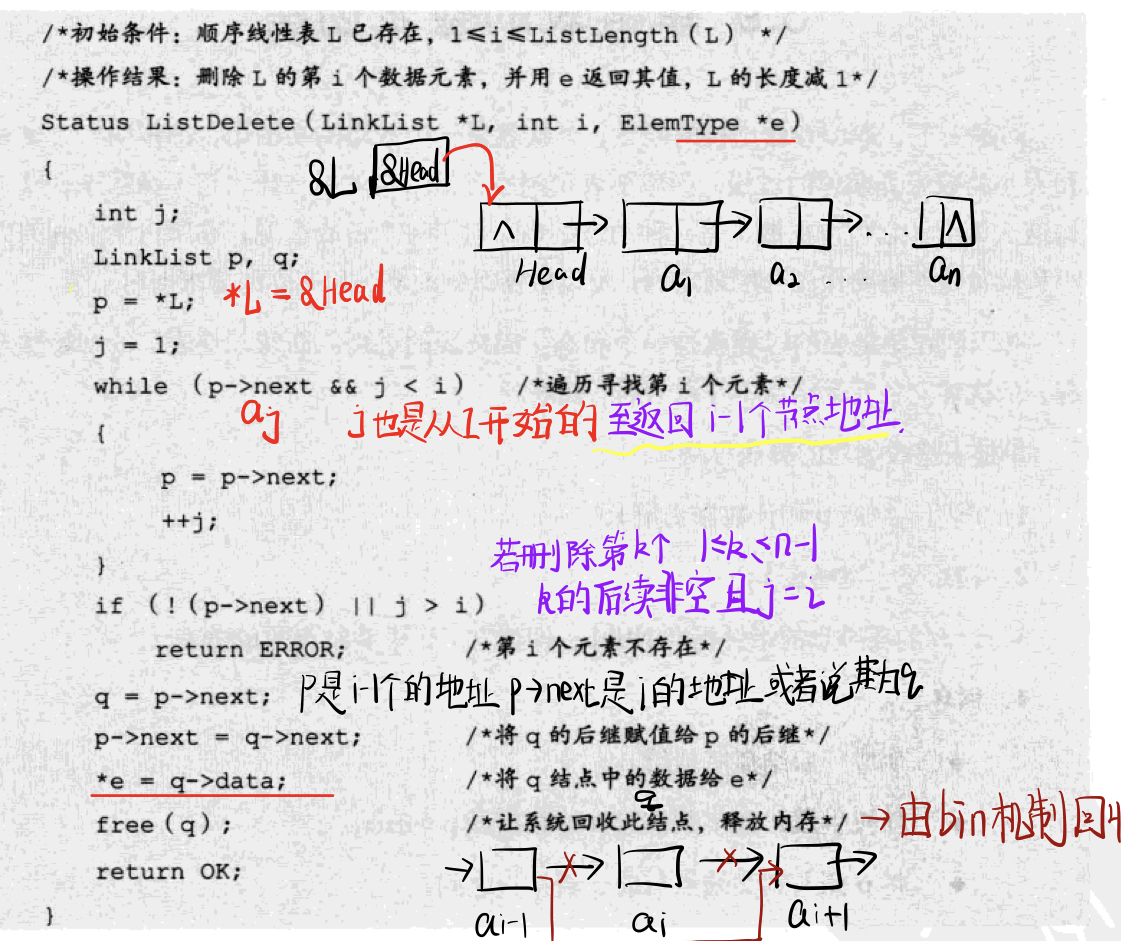 /*初始条件：顺序线性表 L 已存在，1≤i≤ListLength（L） */
/*操作结果：删除 L 的第 i 个数据元素，并用 e 返回其值，L 的长度减 1*/
Status ListDelete（LinkList *L, int i, ElemType *e）
{
&L &Head
int j;
LinkList p, q;
∧ ... ∧
Head a1 a2 ... an
p = *L; *L = &Head
j = 1;
while （p->next && j < i） /*遍历寻找第 i 个元素*/
aj j也是从1开始的 至返回 i-1个节点地址.
{
p = p->next;
++j;
}
若删除第k个 1≤k≤n-1
k的后续非空且j=i
if （!（p->next） || j > i）
return ERROR; /*第 i 个元素不存在*/
q = p->next; p是i-1个的地址 p→next是i的地址 或者说其为q
p->next = q->next; /*将 q 的后继赋值给 p 的后继*/
*e = q->data; /*将 q 结点中的数据给 e*/
q
free（q）; /*让系统回收此结点，释放内存*/ →由bin机制回
return OK;
ai-1 ai ai+1
}